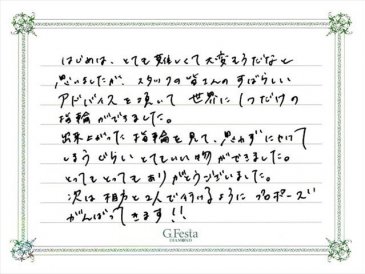 はじめは、とても難しくて大変そうだなと
思いましたが、スタッフの皆さんのすばらしい
アドバイスを頂いて 世界に1つだけの
指輪ができました。
出来上がった指輪を見て、思わずにやけて
しまうぐらい とてもいい物ができました。
とってもとっても ありがとうございました。
次は相方と2人で行けるように プロポーズ
がんばってきます!!
G.Festa
DIAMOND